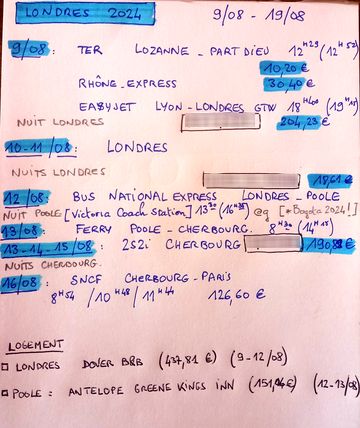 LONDRES 2024 9/08 - 19/08
9/08 : TER LOZANNE - PART DIEU 12H29 (12H52)
10,20 €
RHÔNE-EXPRESS 30,40 €
EASYJET LYON-LONDRES GTW 18H40 (19H11)
NUIT LONDRES 204,23 €
10-11/08 : LONDRES
NUITS LONDRES 18,61 €
12/08 : BUS NATIONAL EXPRESS LONDRES - POOLE
NUIT POOLE [Victoria Coach Station] 13H30 (16H35) @g [*Bogota 2024!]
13/08 : FERRY POOLE - CHERBOURG. 8H30 (14H15)
13-14-15/08 : 2S2i CHERBOURG €
NUITS CHERBOURG.
16/08 : SNCF CHERBOURG-PARIS
8H54 / 10H48 / 11H44 126,60 €
LOGEMENT
□ LONDRES DOVER B&B (437,81 €) (9-12/08)
□ POOLE : ANTELOPE GREENE KINGS INN (12-13/08)